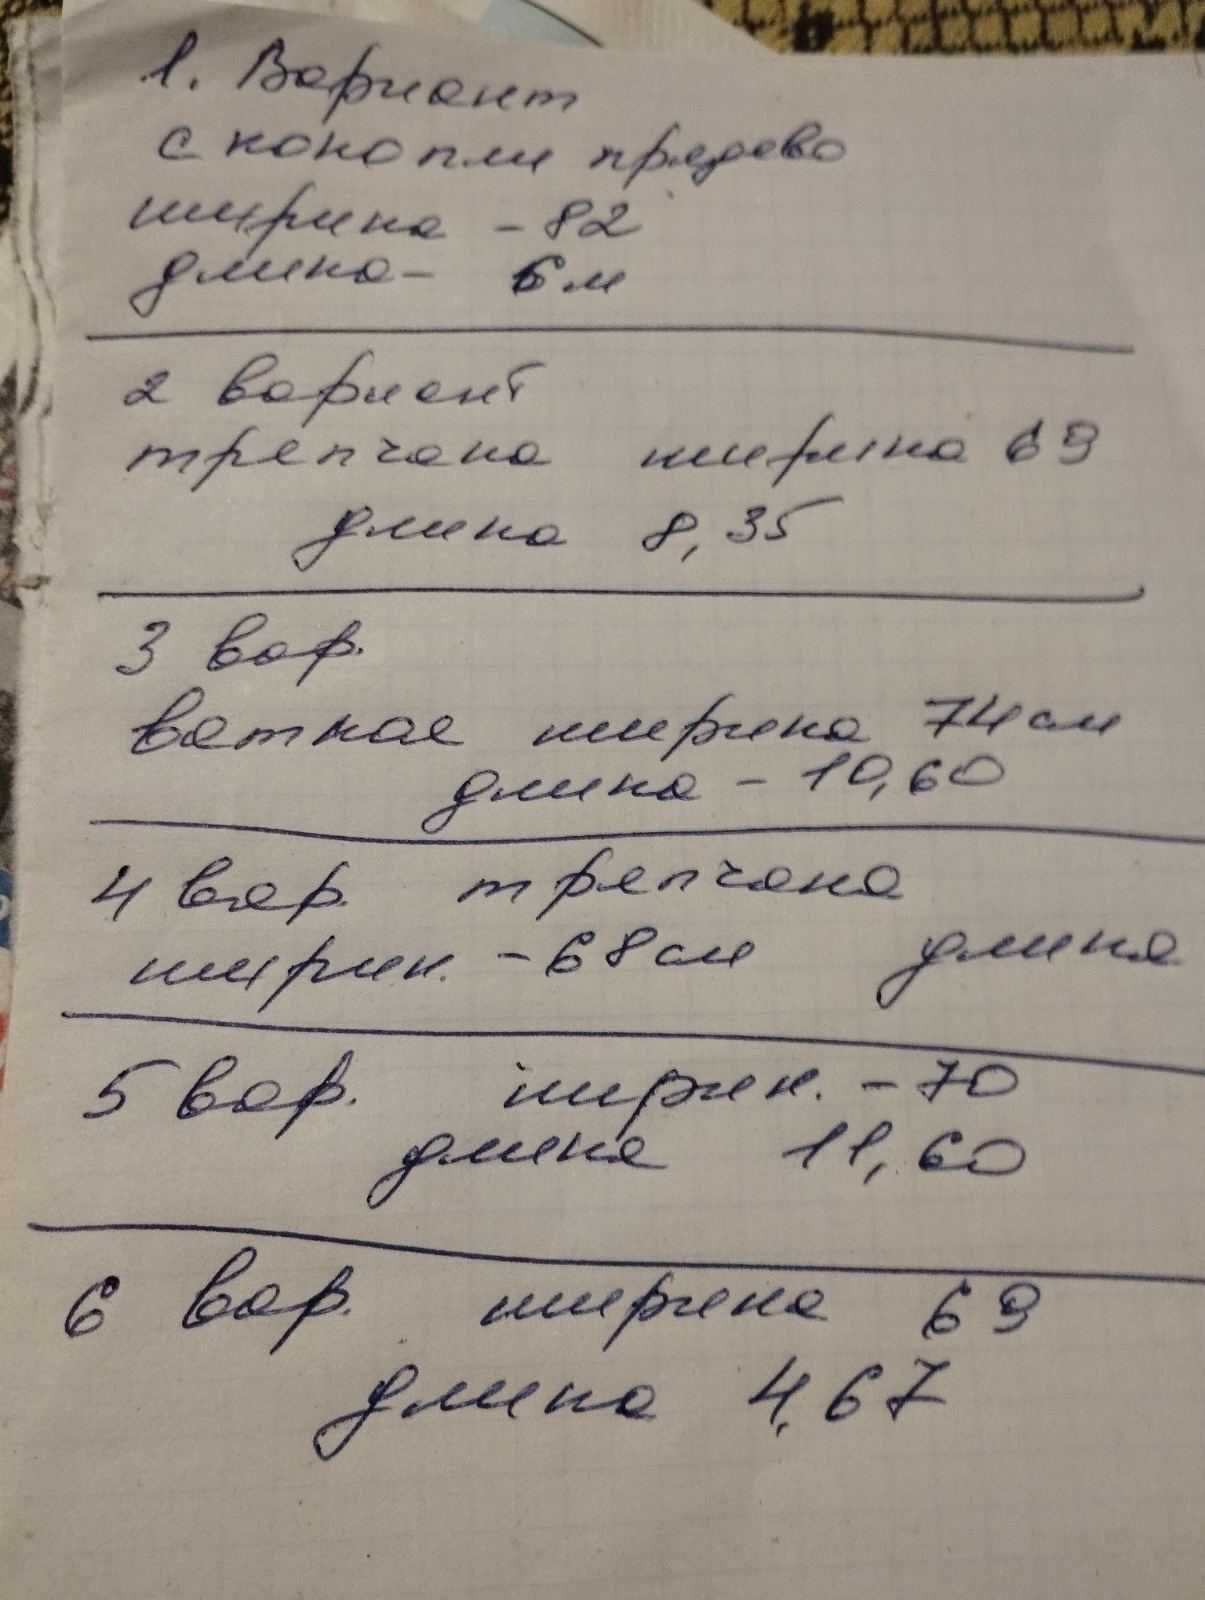 1. Вариант
с конопли прядево
ширина - 82
длина - 6 м
2 вариант
трепчана ширина 69
длина 8,35
3 вар.
ватная ширина 74 см
длина - 10,60
4 вар. трепчана
ширин. - 68 см длина
5 вар. ширин. - 70
длина 11,60
6 вар. ширина 69
длина 4,67